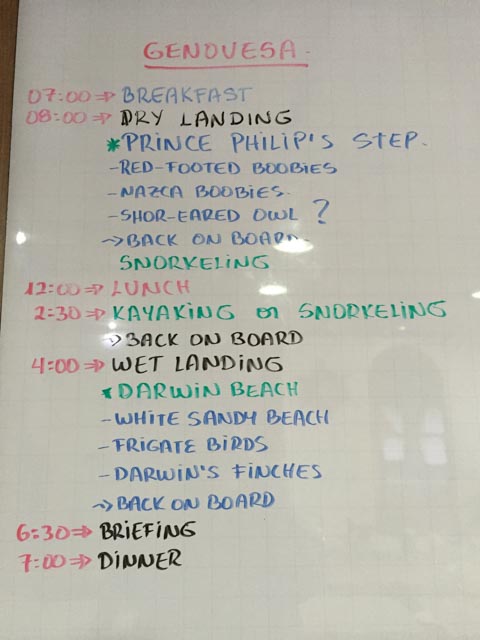 GENOVESA.
07:00 ⇒ BREAKFAST
08:00 ⇒ DRY LANDING
* PRINCE PHILIP'S STEP.
- RED-FOOTED BOOBIES
- NAZCA BOOBIES.
- SHOR-EARED OWL ?
→ BACK ON BOARD
SNORKELING
12:00 ⇒ LUNCH
2:30 ⇒ KAYAKING or SNORKELING
→ BACK ON BOARD
4:00 ⇒ WET LANDING
* DARWIN BEACH
- WHITE SANDY BEACH
- FRIGATE BIRDS
- DARWIN'S FINCHES
→ BACK ON BOARD
6:30 ⇒ BRIEFING
7:00 ⇒ DINNER